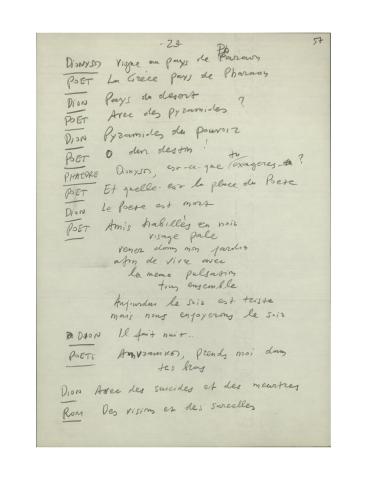 - 23
57
Ph
DIONYSOS Vigne au pays de Pharaons
POET La Grèce pays de Pharaons
DION Pays du desert
POET Avec des pyramides ?
DION Pyramides du pouvoir
POET O dur destin !
PHAEDRE Dionysos, est-ce-que tu exagères ?
POET Et quelle est la place du Poete
DION Le Poete est mort
POET Amis habillés en noir
visage pale
venez dans mon jardin
afin de vivre avec
la meme pulsation
tous ensemble
Aujourdui le soir est triste
mais nous egayerons le soir
DION Il fait nuit..
POETS prends moi dans
tes bras
DION Avec des suicides et des meurtres
ROM Des visions et des